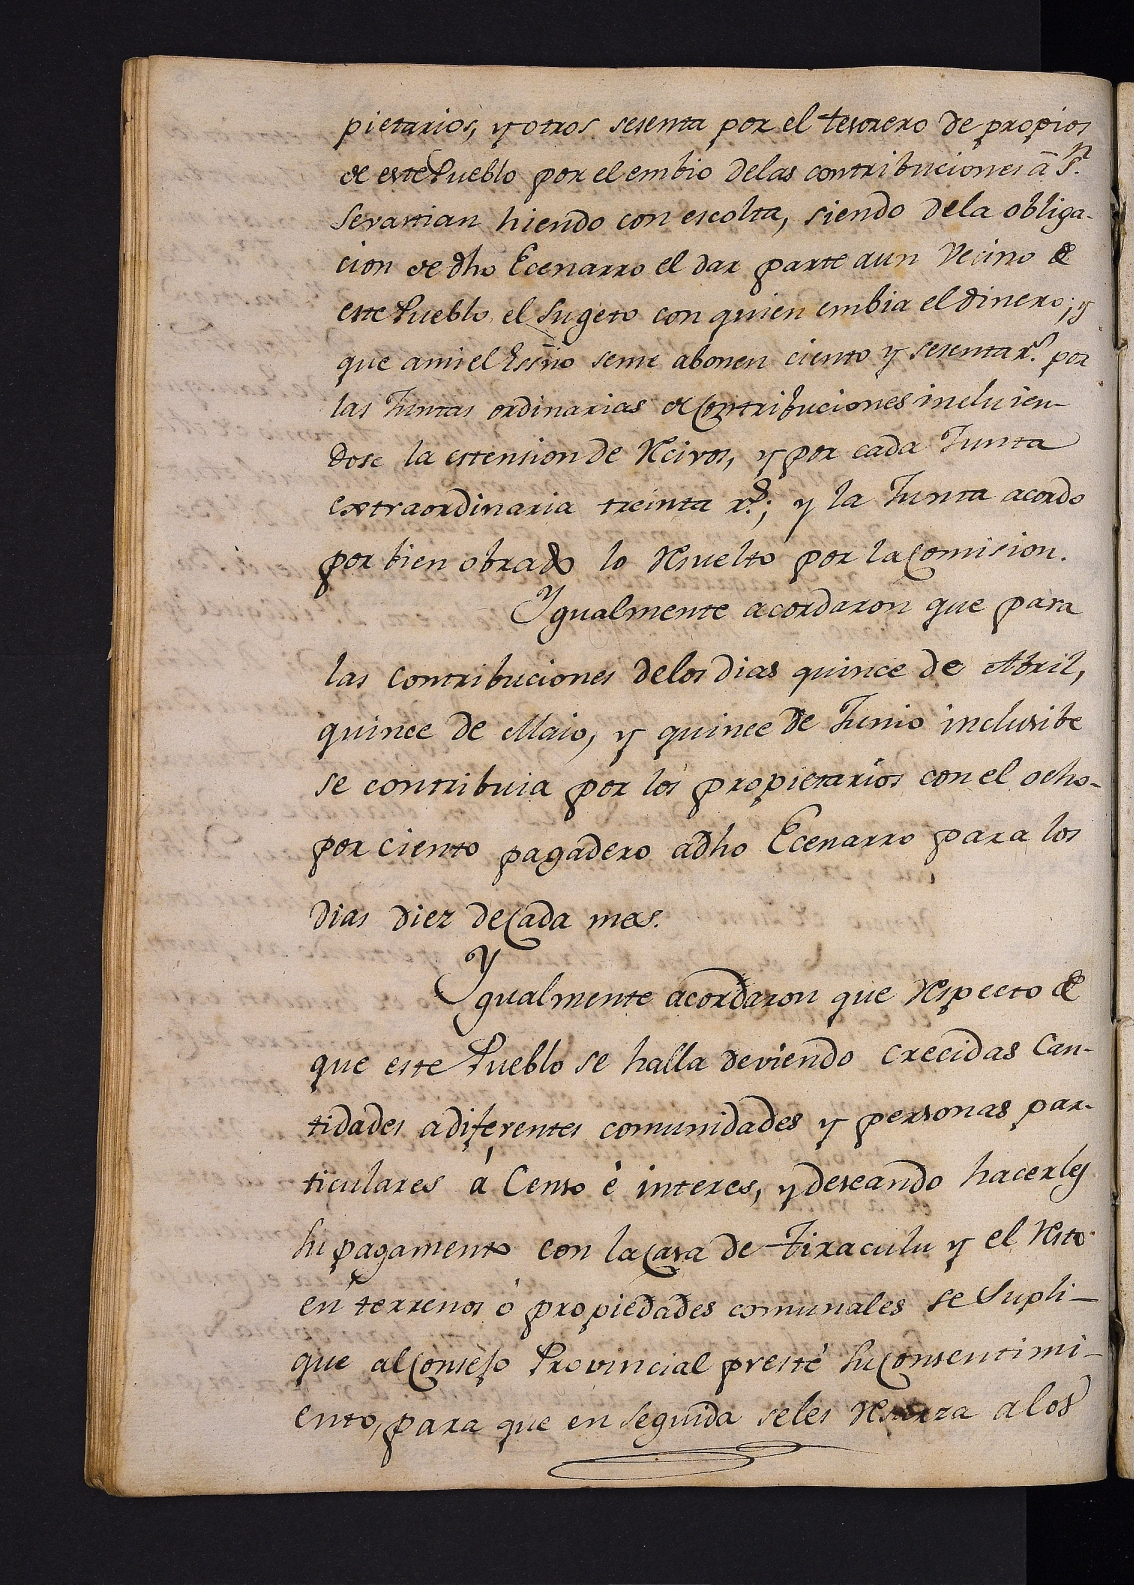 pietarios, y otros sesenta por el tesorero de propios
de este Pueblo por el embio delas contribuciones a Sn.
Sevastian hiendo con escolta, siendo dela obliga-
cion de dho Ecenarro el dar parte aun vecino de
este Pueblo el Sugeto con quien embia el dinero; y
que ami el Essno seme abonen ciento y sesenta rs. por
las Juntas ordinarias de Contribuciones incluien-
dose la estension de Recivos, y por cada Junta
extraordinaria treinta rs.; y la Junta acordo
por bien obrado lo Resuelto por la Comision.
Ygualmente acordaron que para
las contribuciones delos dias quince de Abril,
quince de Maio, y quince de Junio inclusibe
se contribuia por los propietarios con el ocho-
por ciento pagadero adho Ecenarro para los
dias diez de Cada mes.
Ygualmente acordaron que Respecto de
que este Pueblo se halla deviendo crecidas Can-
tidades a diferentes comunidades y personas par-
ticulares á Censo é interes, y deseando hacerles
su pagamento con la Casa de Tiraculu y el Resto
en terrenos ó propiedades comunales se Supli-
que al Consejo Provincial presté su Consentimi-
ento, para que en seguida seles a los